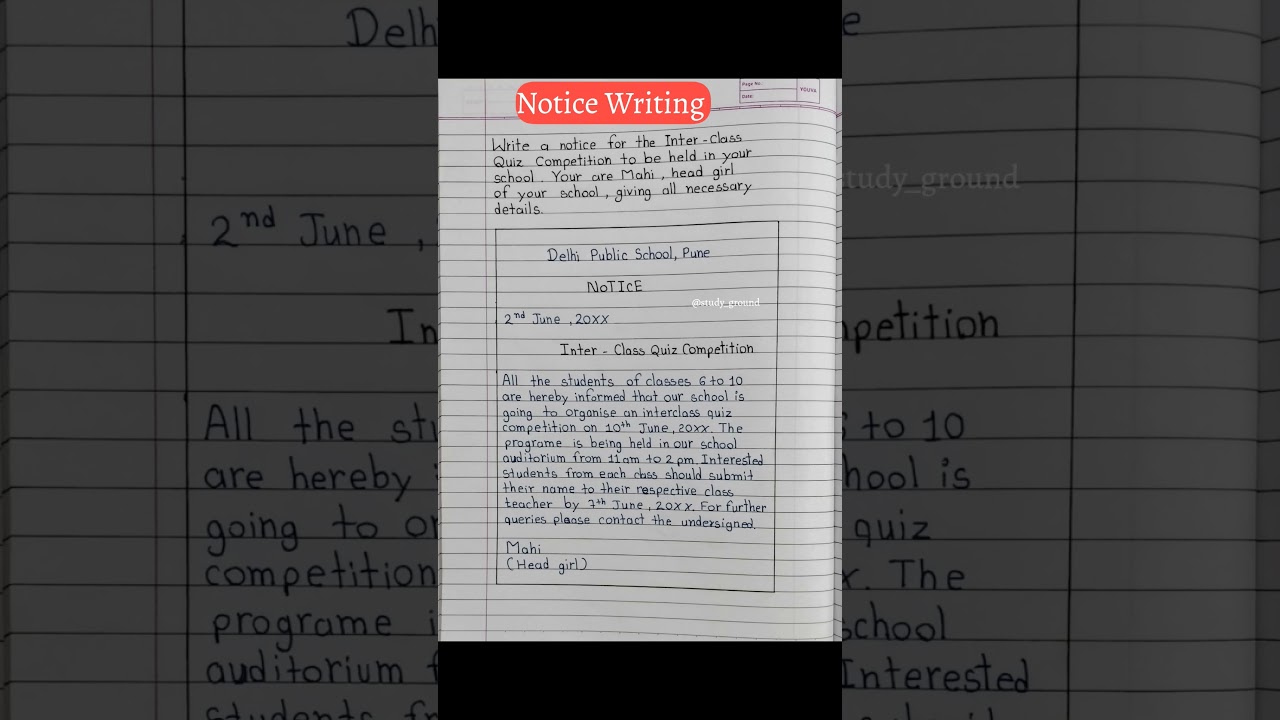 Notice Writing
Page No.:
Date:
YOUVA
Write a notice for the Inter-Class
Quiz Competition to be held in your
school. Your are Mahi, head girl
of your school, giving all necessary
details.
Delhi Public School, Pune
NOTICE
@study_ground
2nd June, 20XX
Inter-Class Quiz Competition
All the students of classes 6 to 10
are hereby informed that our school is
going to organise an interclass quiz
competition on 10th June, 20xx. The
programe is being held in our school
auditorium from 11am to 2 pm. Interested
students from each class should submit
their name to their respective class
teacher by 7th June, 20XX. For further
queries please contact the undersigned.
Mahi
(Head girl)
Delh
e
tudy_ground
2nd June,
In
petition
All the stu
to 10
are hereby
hool is
going to or
quiz
competition
x. The
programe i
school
auditorium f
Interested
students fr